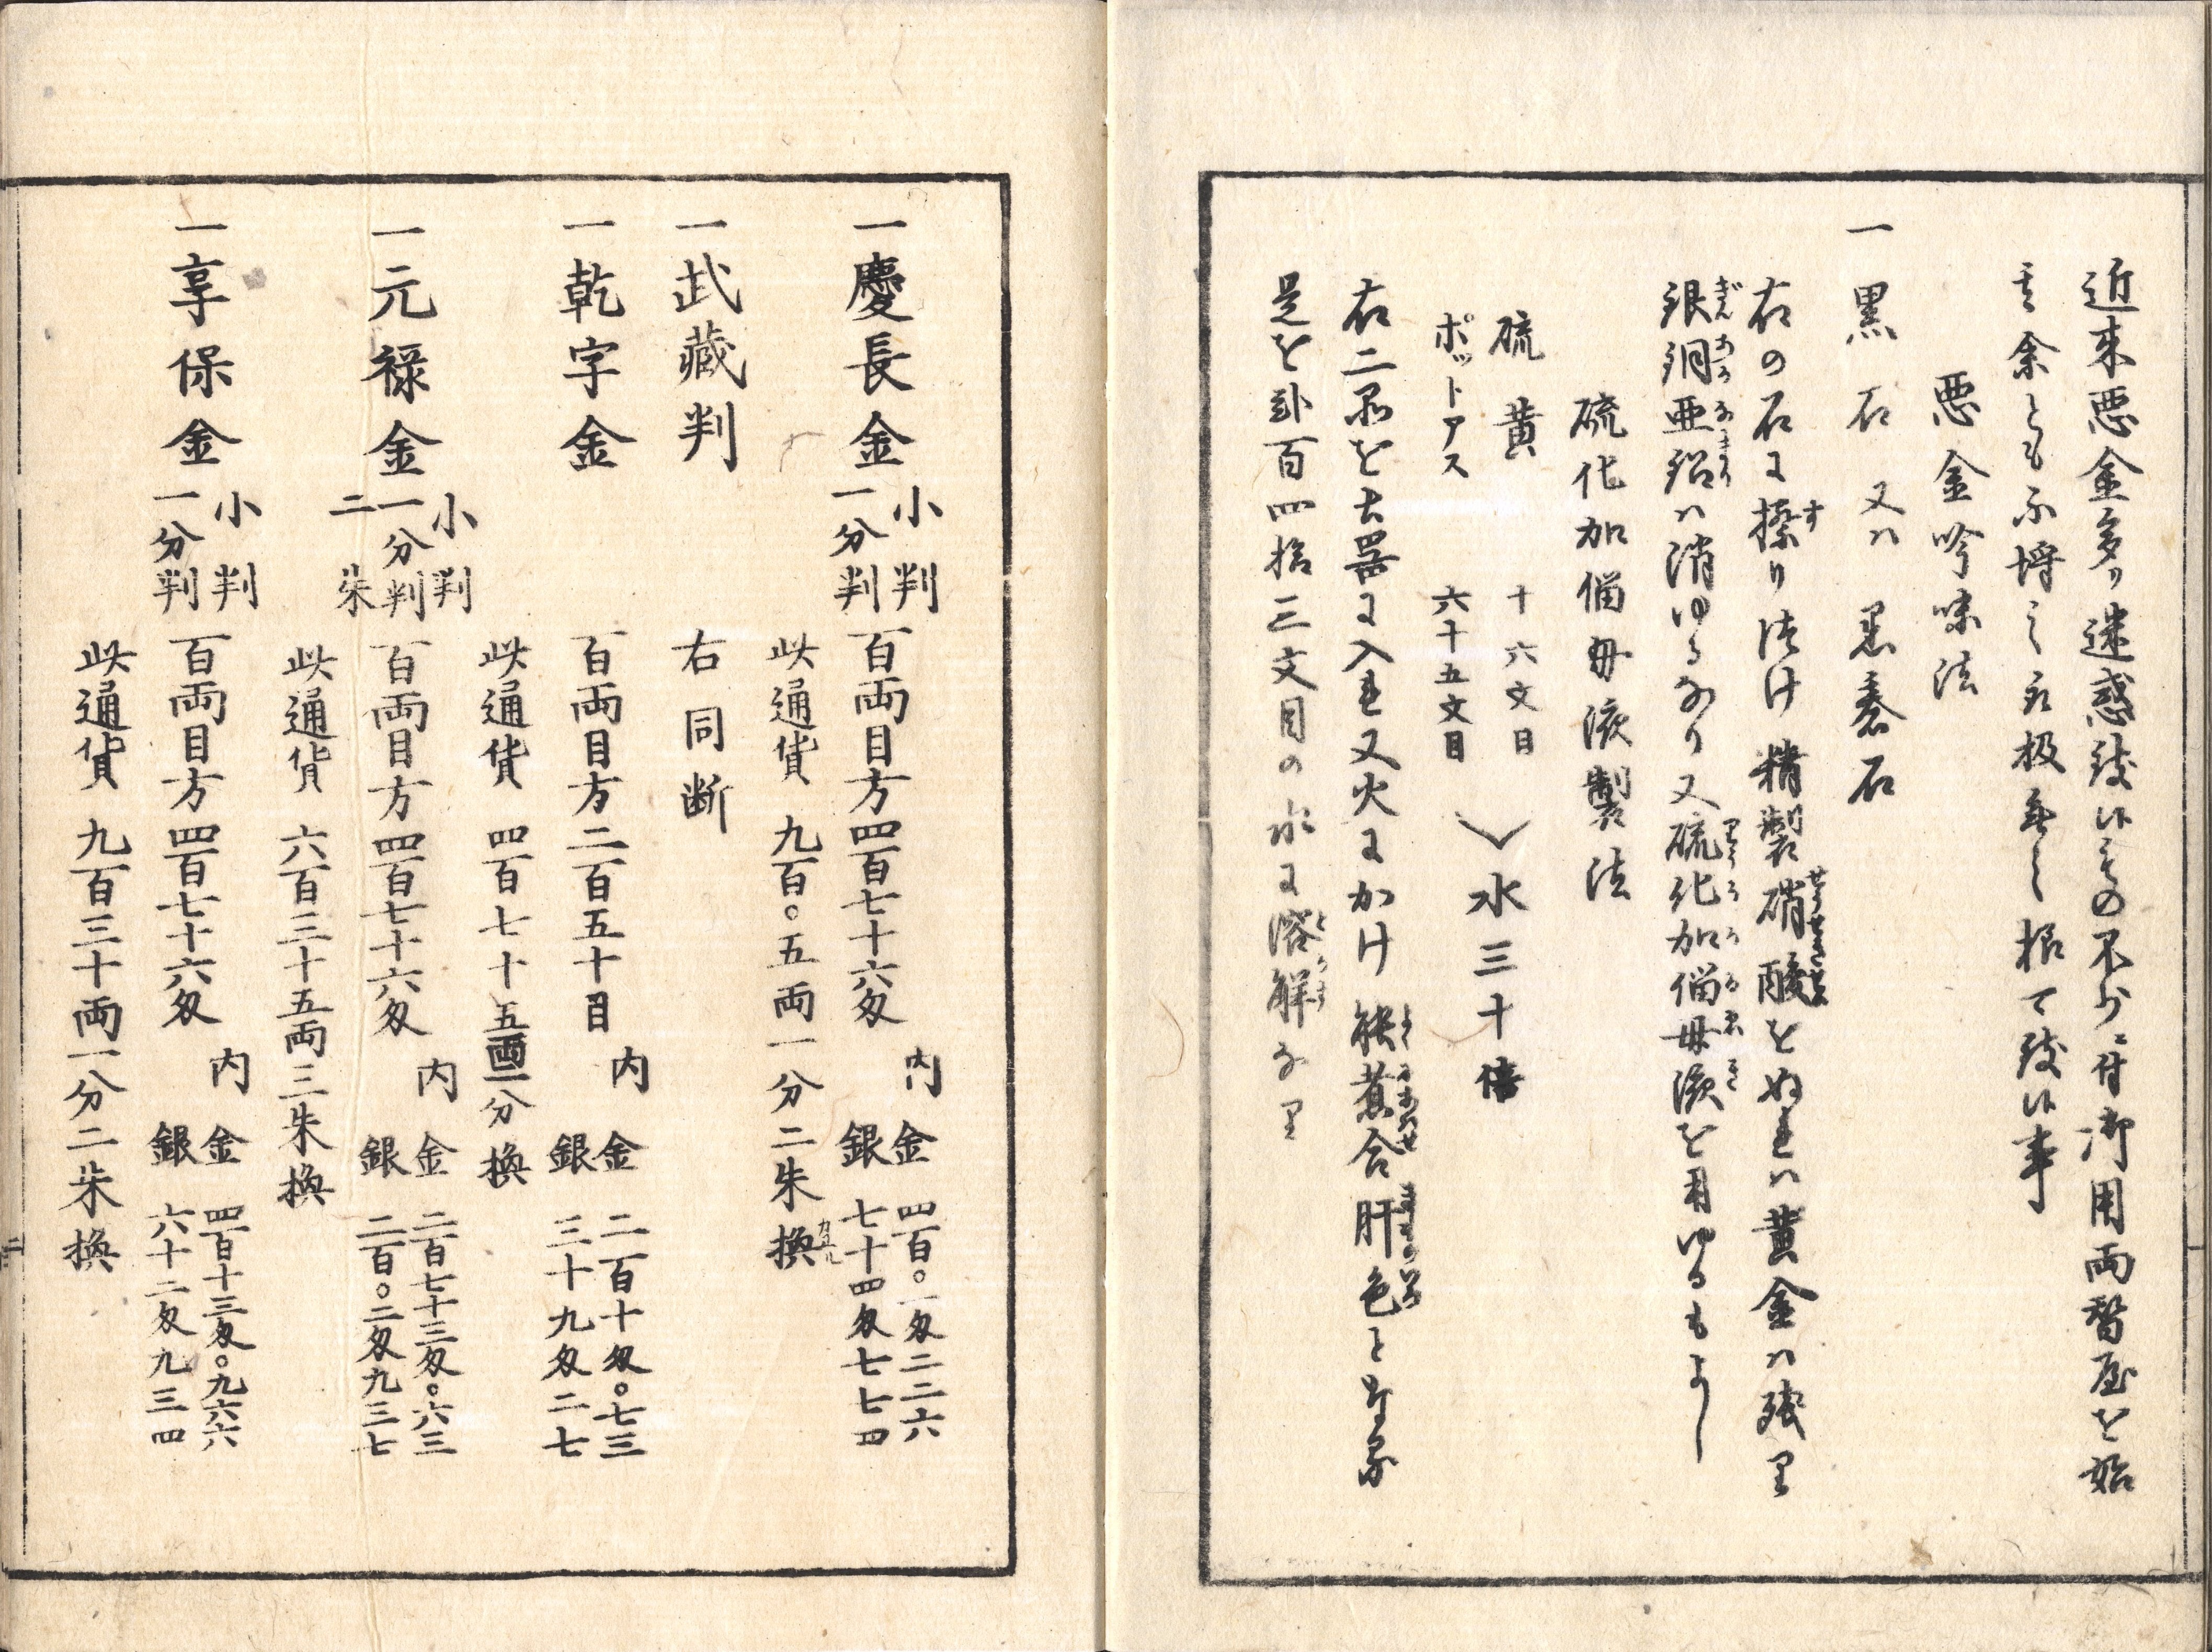 近来悪金多リ迷惑致候もの不少ニ付御用両替屋を始
其余とも不埒之至極無之様て致候事
悪金吟味法
一黒石又ハ黒碁石
右の石に擦り附け精製硝酸をぬれハ黄金ハ残り
銀銅亜鉛ハ消ゆるなり又硫化加僴毋液を用ゆるもよし
硫化加僴毋液製法
硫黄 十六文目
ポットアス 六十五文目
水三十倍
右二品を土器に入れ又火にかけ 煮合肝色となる
是を卦百四拾三文目の水に溶解なり
一慶長金 小判 一分判 百両目方四百七十六匁 内 金 四百〇一匁二二六 銀 七十四匁七七四
此通貨 九百〇五両一分二朱換
一武藏判 右同断
一乾字金 百両目方二百五十目 内 金 二百十匁〇七三 銀 三十九匁二七
此通貨 四百七十五両一分換
一元禄金 小判 一分判 二朱 百両目方四百七十六匁 内 金 二百七十三匁〇六三 銀 二百〇二匁九三七
此通貨 六百三十五両三朱換
一享保金 小判 一分判 百両目方四百七十六匁 内 金 四百十三匁〇九六六 銀 六十二匁九三四
此通貨 九百三十両一分二朱換
二